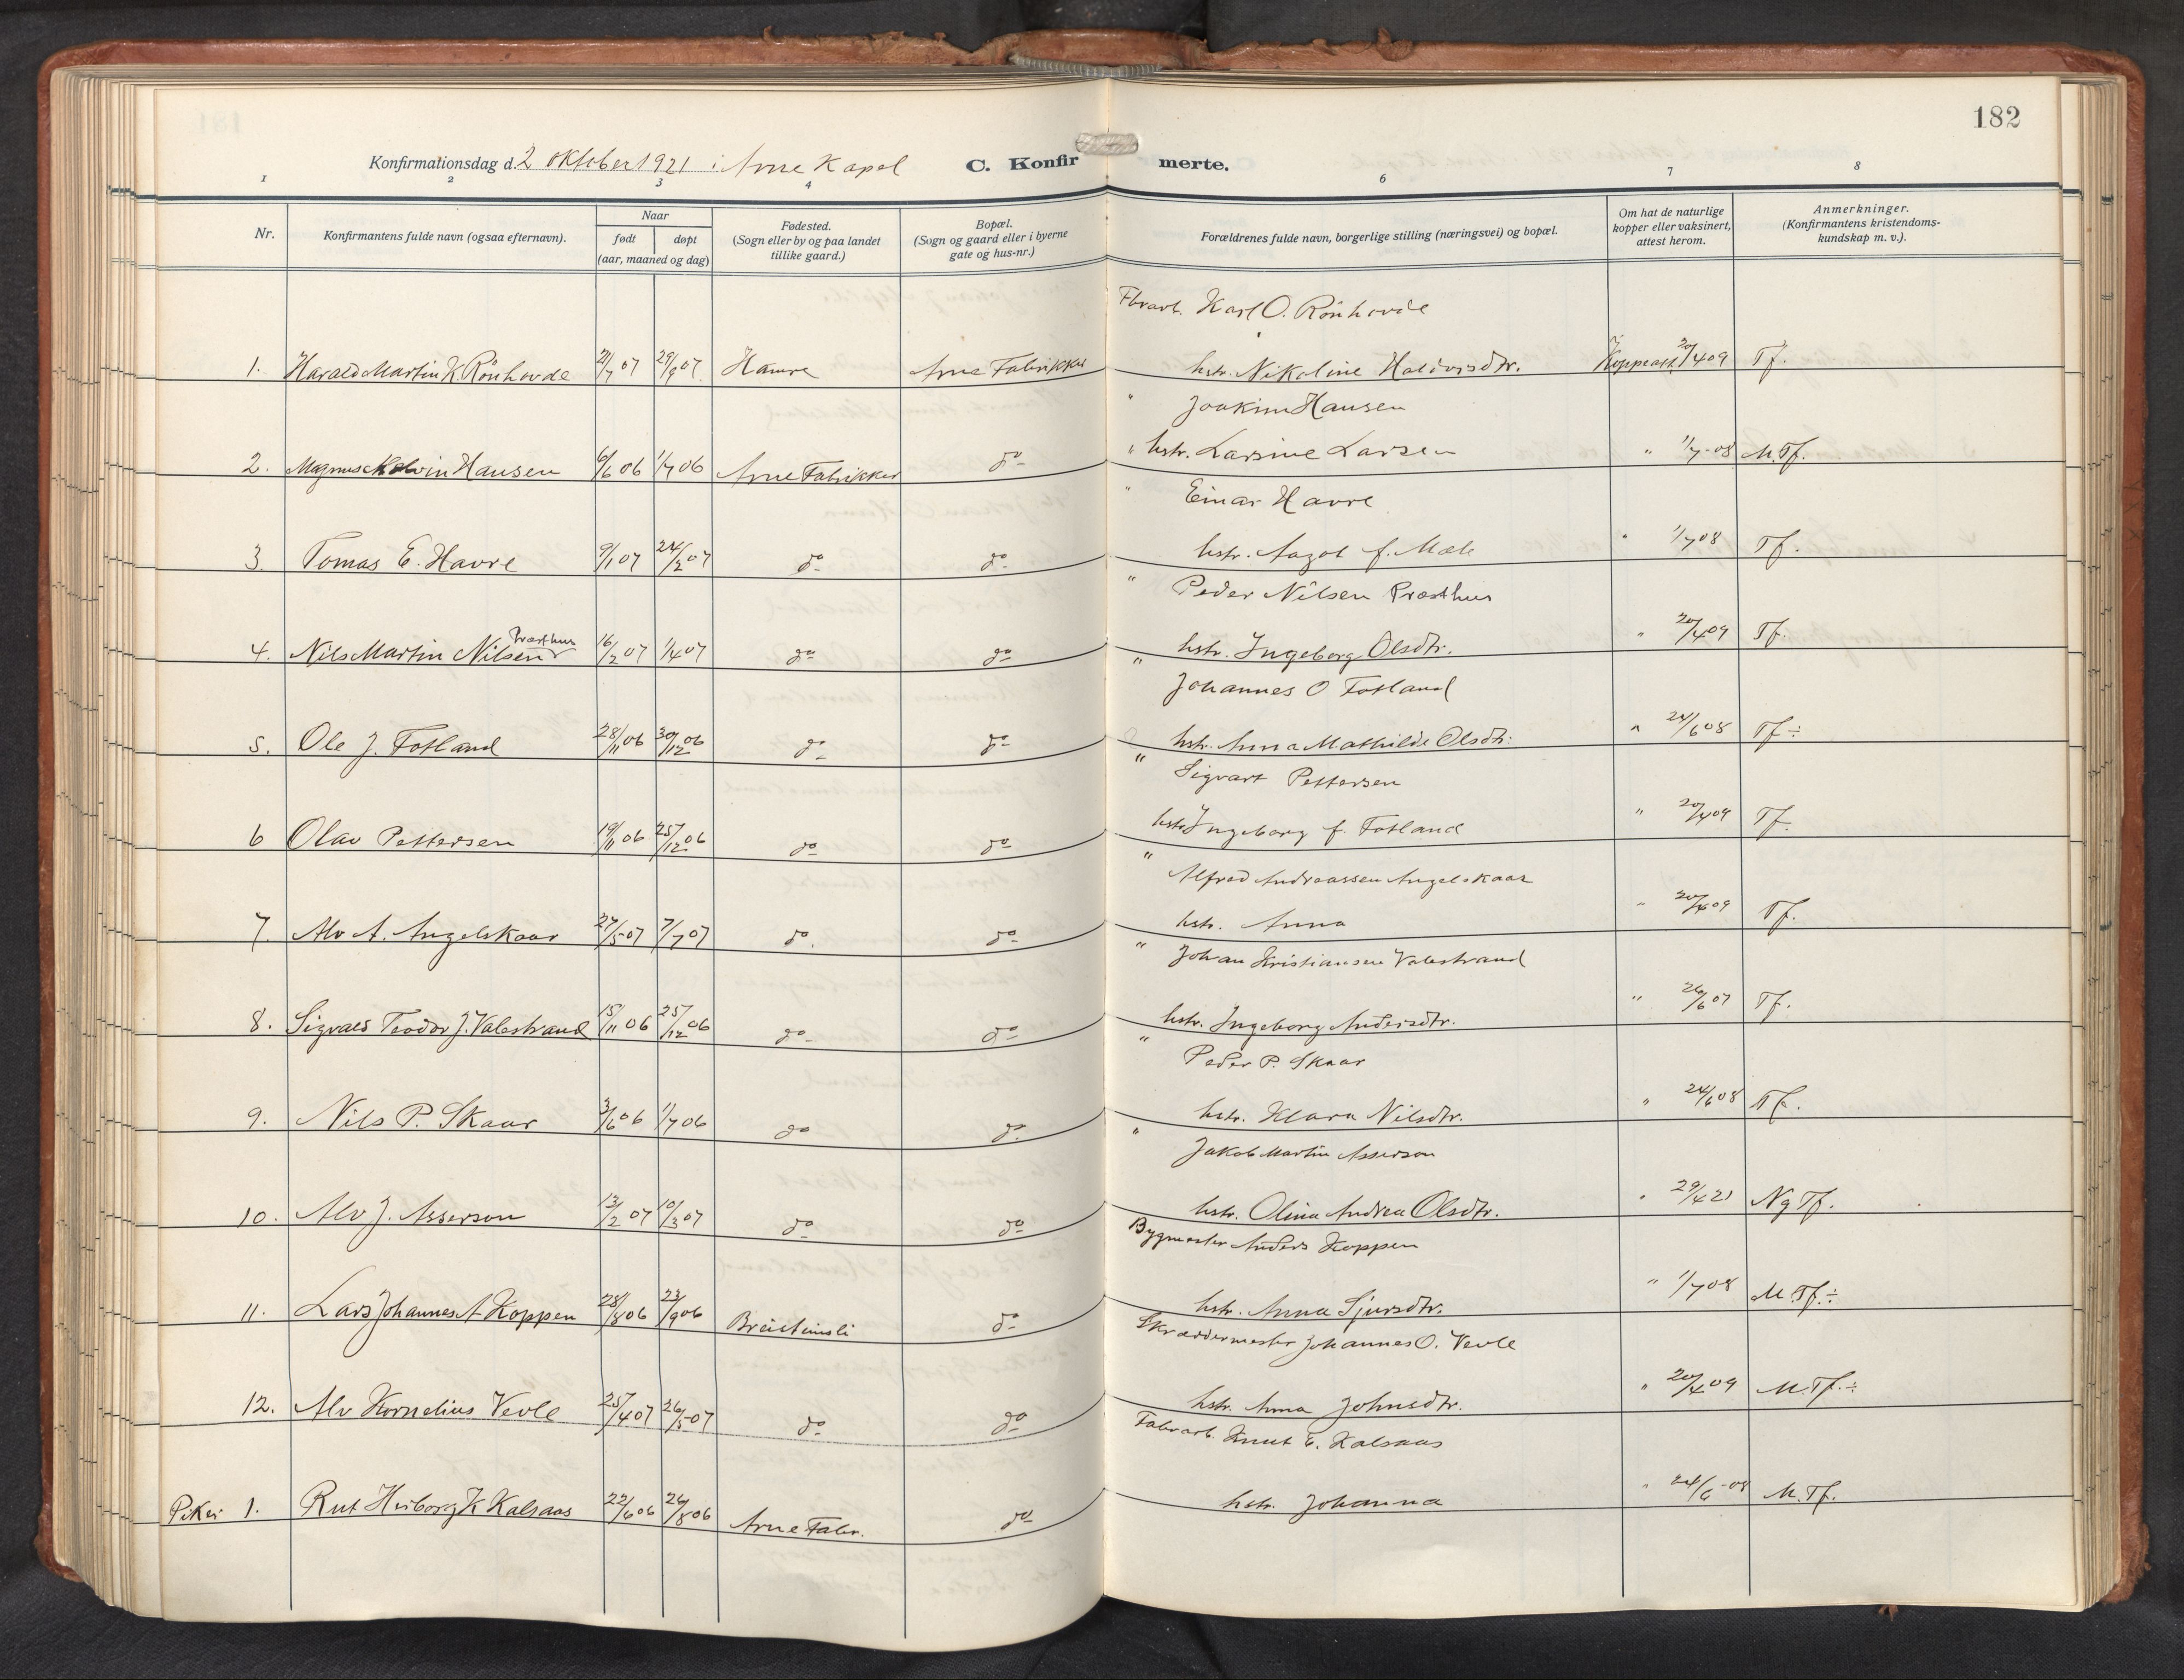 182
Konfirmationsdag d. 2 oktober 1921 i Arne Kapel C. Konfirmerte.
1 2 3 4 6 7 8
Nr. Konfirmantens fulde navn (ogsaa efternavn). Naar født døpt (aar, maaned og dag) Fødested. (Sogn eller by og paa landet tillike gaard.) Bopæl. (Sogn og gaard eller i byerne gate og hus-nr.) Forældrenes fulde navn, borgerlige stilling (næringsvei) og bopæl. Om hat de naturlige kopper eller vaksinert, attest herom. Anmerkninger. (Konfirmantens kristendoms-kundskap m. v.).
Fbrarb. Karl O. Rönhovde
1. Harald Martin K. Rönhovde 21/7 07 29/9 07 Hamre Arne Fabrikker hstr. Nikoline Halvorsdtr. Koppeatt. 20/4 09 Tf.
" Joakim Hansen
2. Magnus Hansen 6/6 06 1/7 06 Arne Fabrikker do " hstr. Larsine Larsen " 1/7-08 M.Tf.
" Einar Havre
3. Tomas E. Havre 9/1 07 24/2 07 do do hstr. Aagot f. Mæle " 1/7 08 Tf.
" Peder Nilsen Præsthus
4. Nils Martin Nilsen Præsthus 16/2 07 1/4 07 do do hstr. Ingeborg Olsdtr. " 20/4 09 Tf.
" Johannes O Fotland
5. Ole J. Fotland 28/11 06 30/12 06 do do hstr. Anna Mathilde Olsdtr. " 24/6 08 Tf ÷
" Sigvart Pettersen
6 Olav Pettersen 19/11 06 25/12 06 do do hstr Ingeborg f. Fotland " 20/4 09 Tf.
" Alfred Andreassen Angelskaar
7. Alv A. Angelskaar 27/5 07 7/7 07 do. do hstr. Anna " 20/4 09 Tf.
" Johan Kristiansen Valestrand
8. Sigvald Teodor J. Valestrand 15/11 06 25/12 06 do do hstr. Ingeborg Andersdtr. " 26/6 07 Tf.
" Peder P. Skaar
9. Nils P. Skaar 3/6 06 1/7 06 do do. hstr. Klara Nilsdtr. " 24/6 08 Tf.
" Jakob Martin Asserson
10. Alv J. Asserson 13/2 07 10/3 07 do do hstr. Olina Andrea Olsdtr. " 29/4 21 Ng Tf.
Bygmester Anders Koppen
11. Lars Johannes A Koppen 28/8 06 23/9 06 Breisteinsli do hstr. Anna Sjursdtr. " 1/7 08 M.Tf. ÷
Skræddermester Johannes O. Vevle
12. Alv Kornelius Vevle 25/4 07 26/5 07 do do hstr. Anna Johnsdtr. " 20/4 09 M.Tf. ÷
Fabrarb. Knut E. Kalsaas
Piker 1. Rut K Kalsaas 22/6 06 26/8 06 Arne Fabr. do hstr. Johanna " 24/6-08 M.Tf.